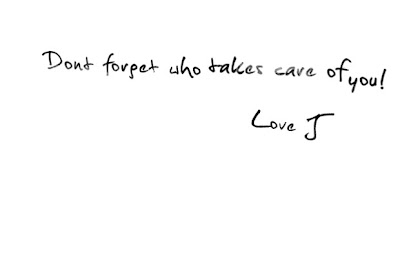 Dont forget who takes care of you!
Love J